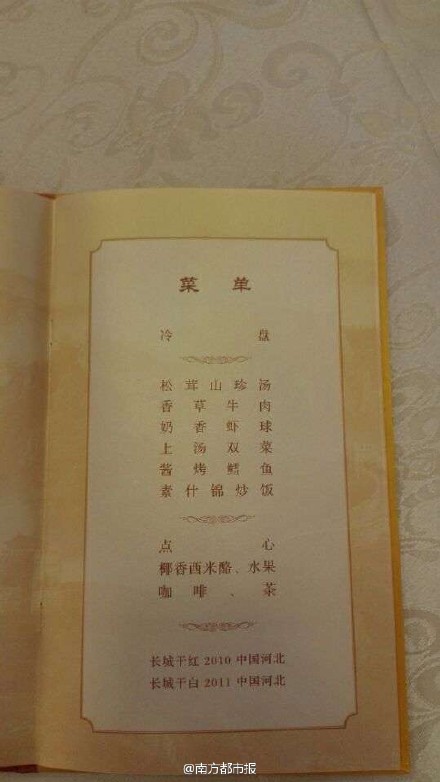 菜单
冷盘
松茸山珍汤
香草牛肉
奶香虾球
上汤双菜
酱烤鳕鱼
素什锦炒饭
点心
椰香西米酪、水果
咖啡、茶
长城干红 2010 中国河北
长城干白 2011 中国河北
@南方都市报